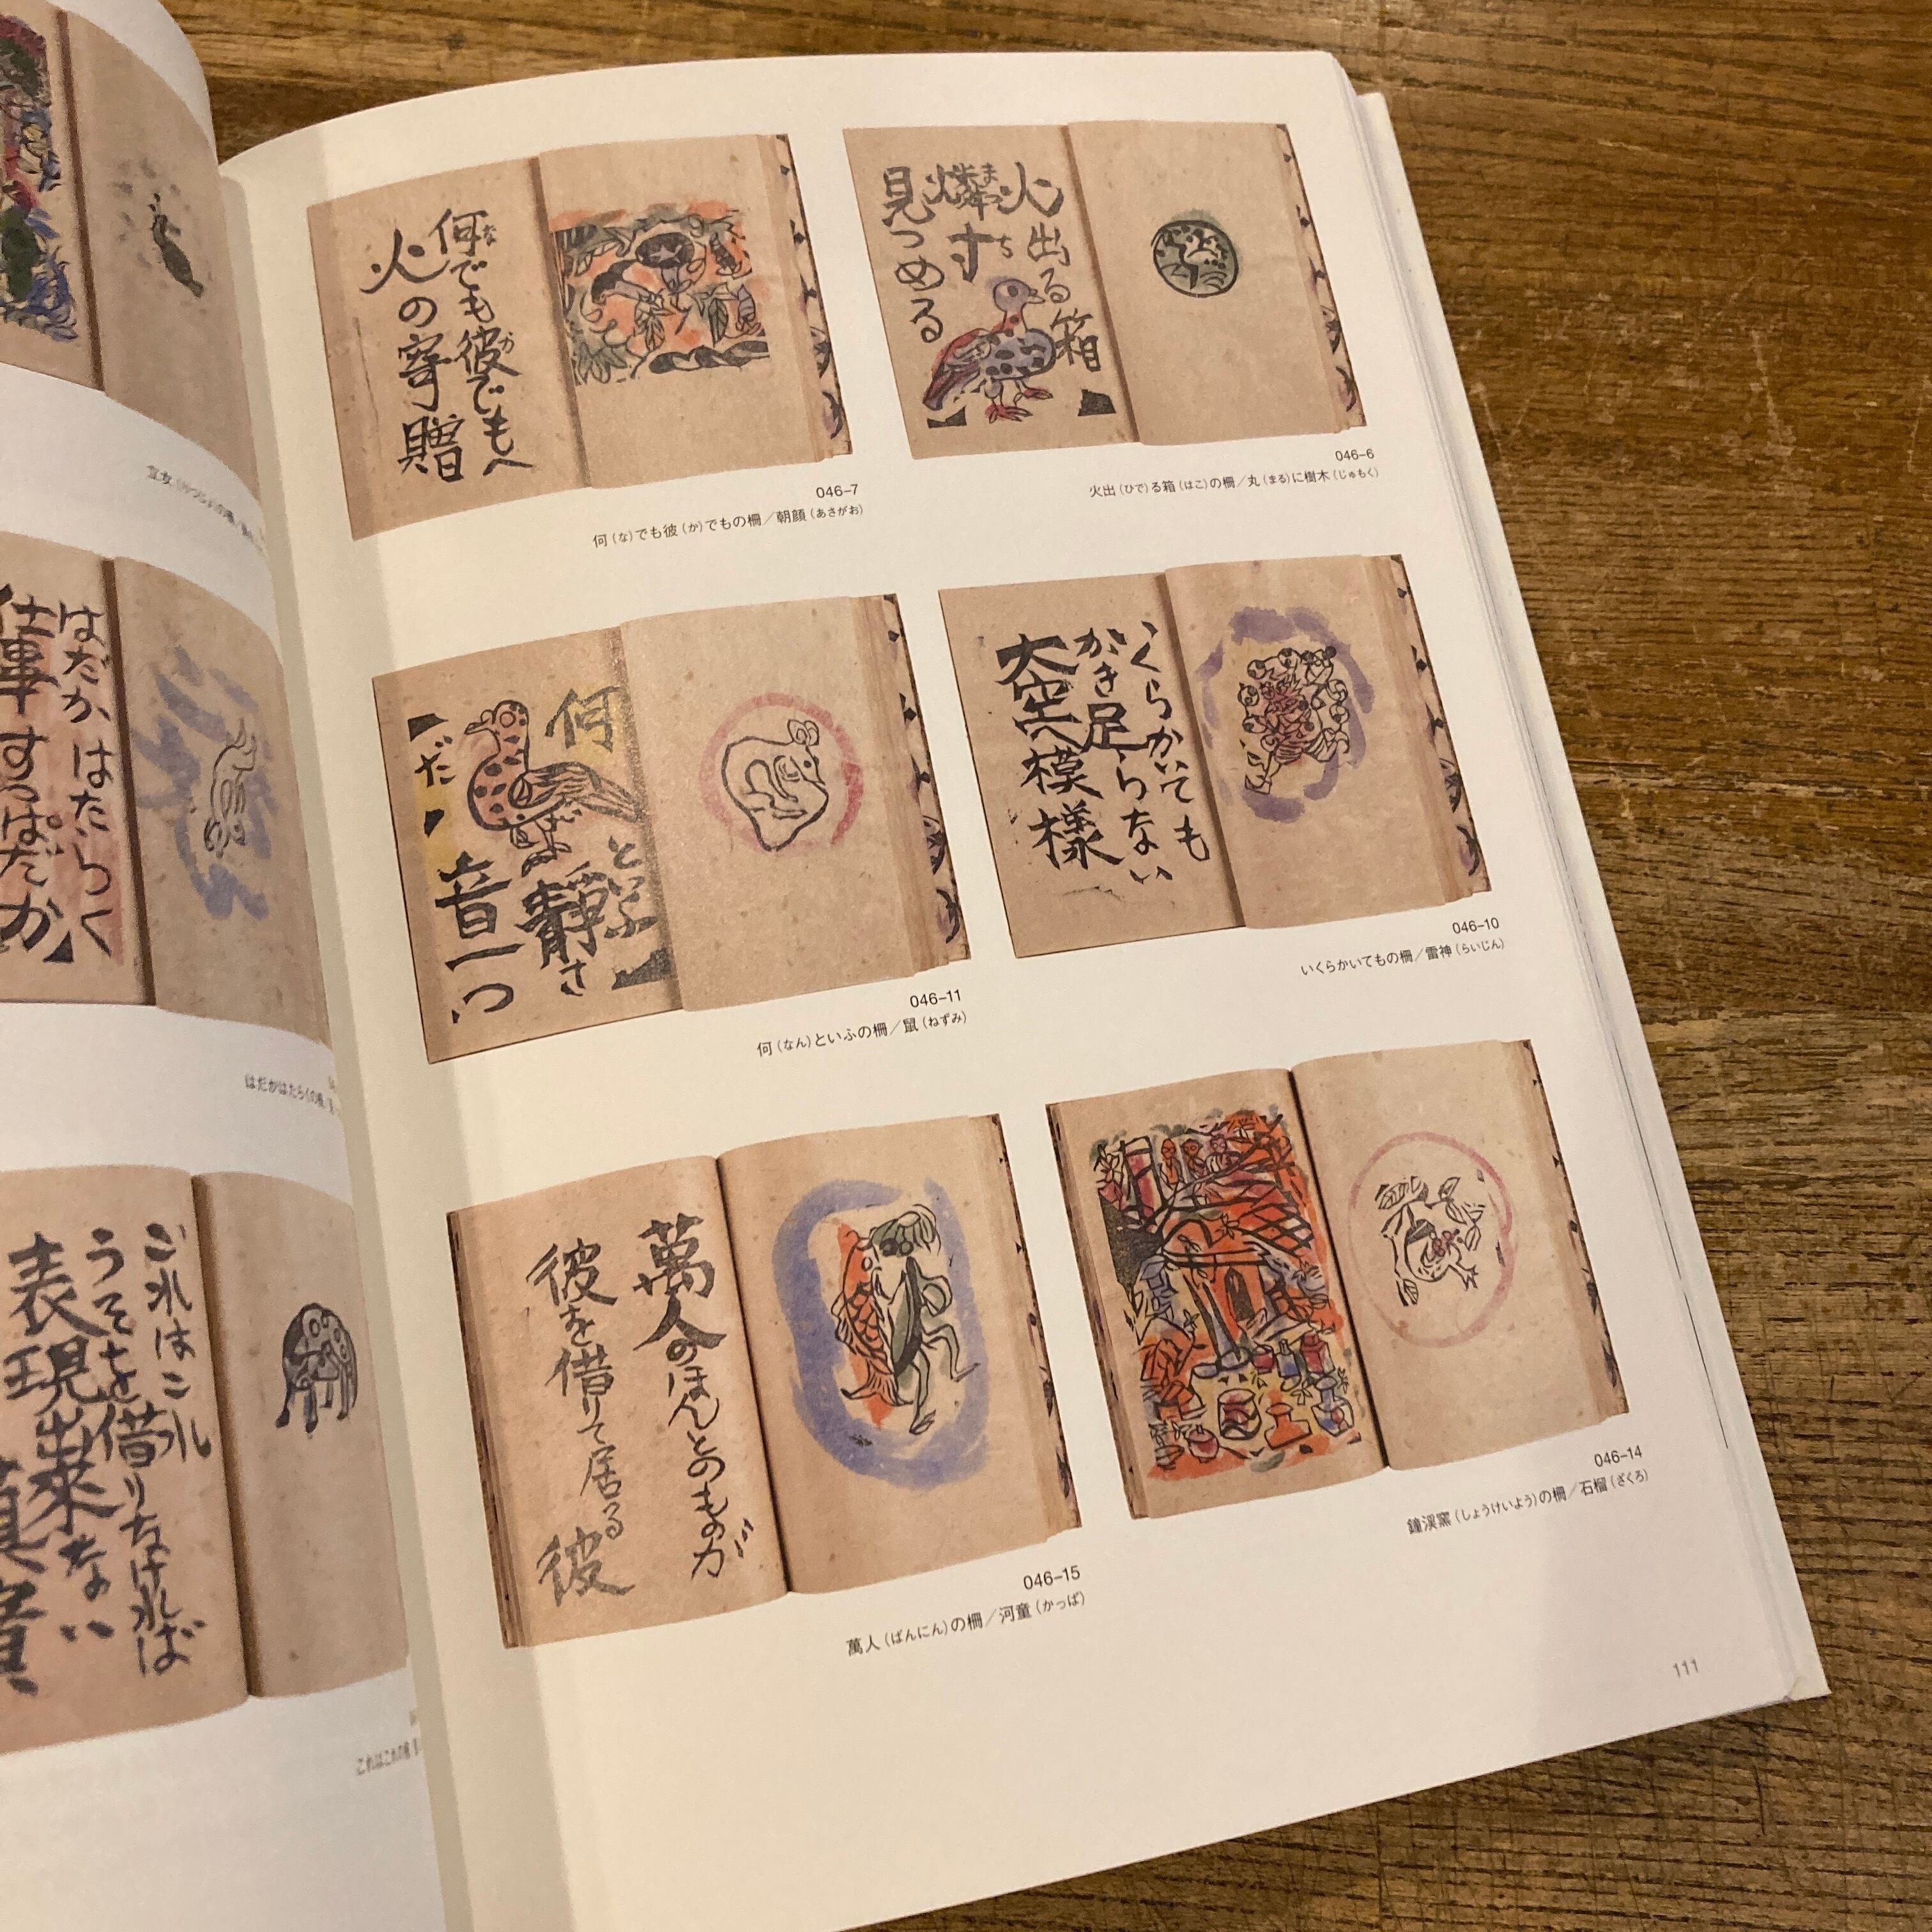 はだかはたらく
仕事すつぱだか
はだかはたらくの柵
これはこれ
うそを借りなければ
表現出来ない
真實
これはこれの柵
火出る箱
燐寸
まち
見つめる
046-6
火出(ひで)る箱(はこ)の柵/丸(まる)に樹木(じゅもく)
何でも彼でもへ
な
か
火の寄贈
046-7
何(な)でも彼(か)でもの柵/朝顔(あさがお)
いくらかいても
かき足らない
大空へ模様
046-10
いくらかいてもの柵/雷神(らいじん)
何といふ
静さ
音一つ
だ
046-11
何(なん)といふの柵/鼠(ねずみ)
046-14
鐘渓窯(しょうけいよう)の柵/石榴(ざくろ)
萬人のほんとのものが
彼を借りて居る
彼
046-15
萬人(ばんにん)の柵/河童(かっぱ)
111